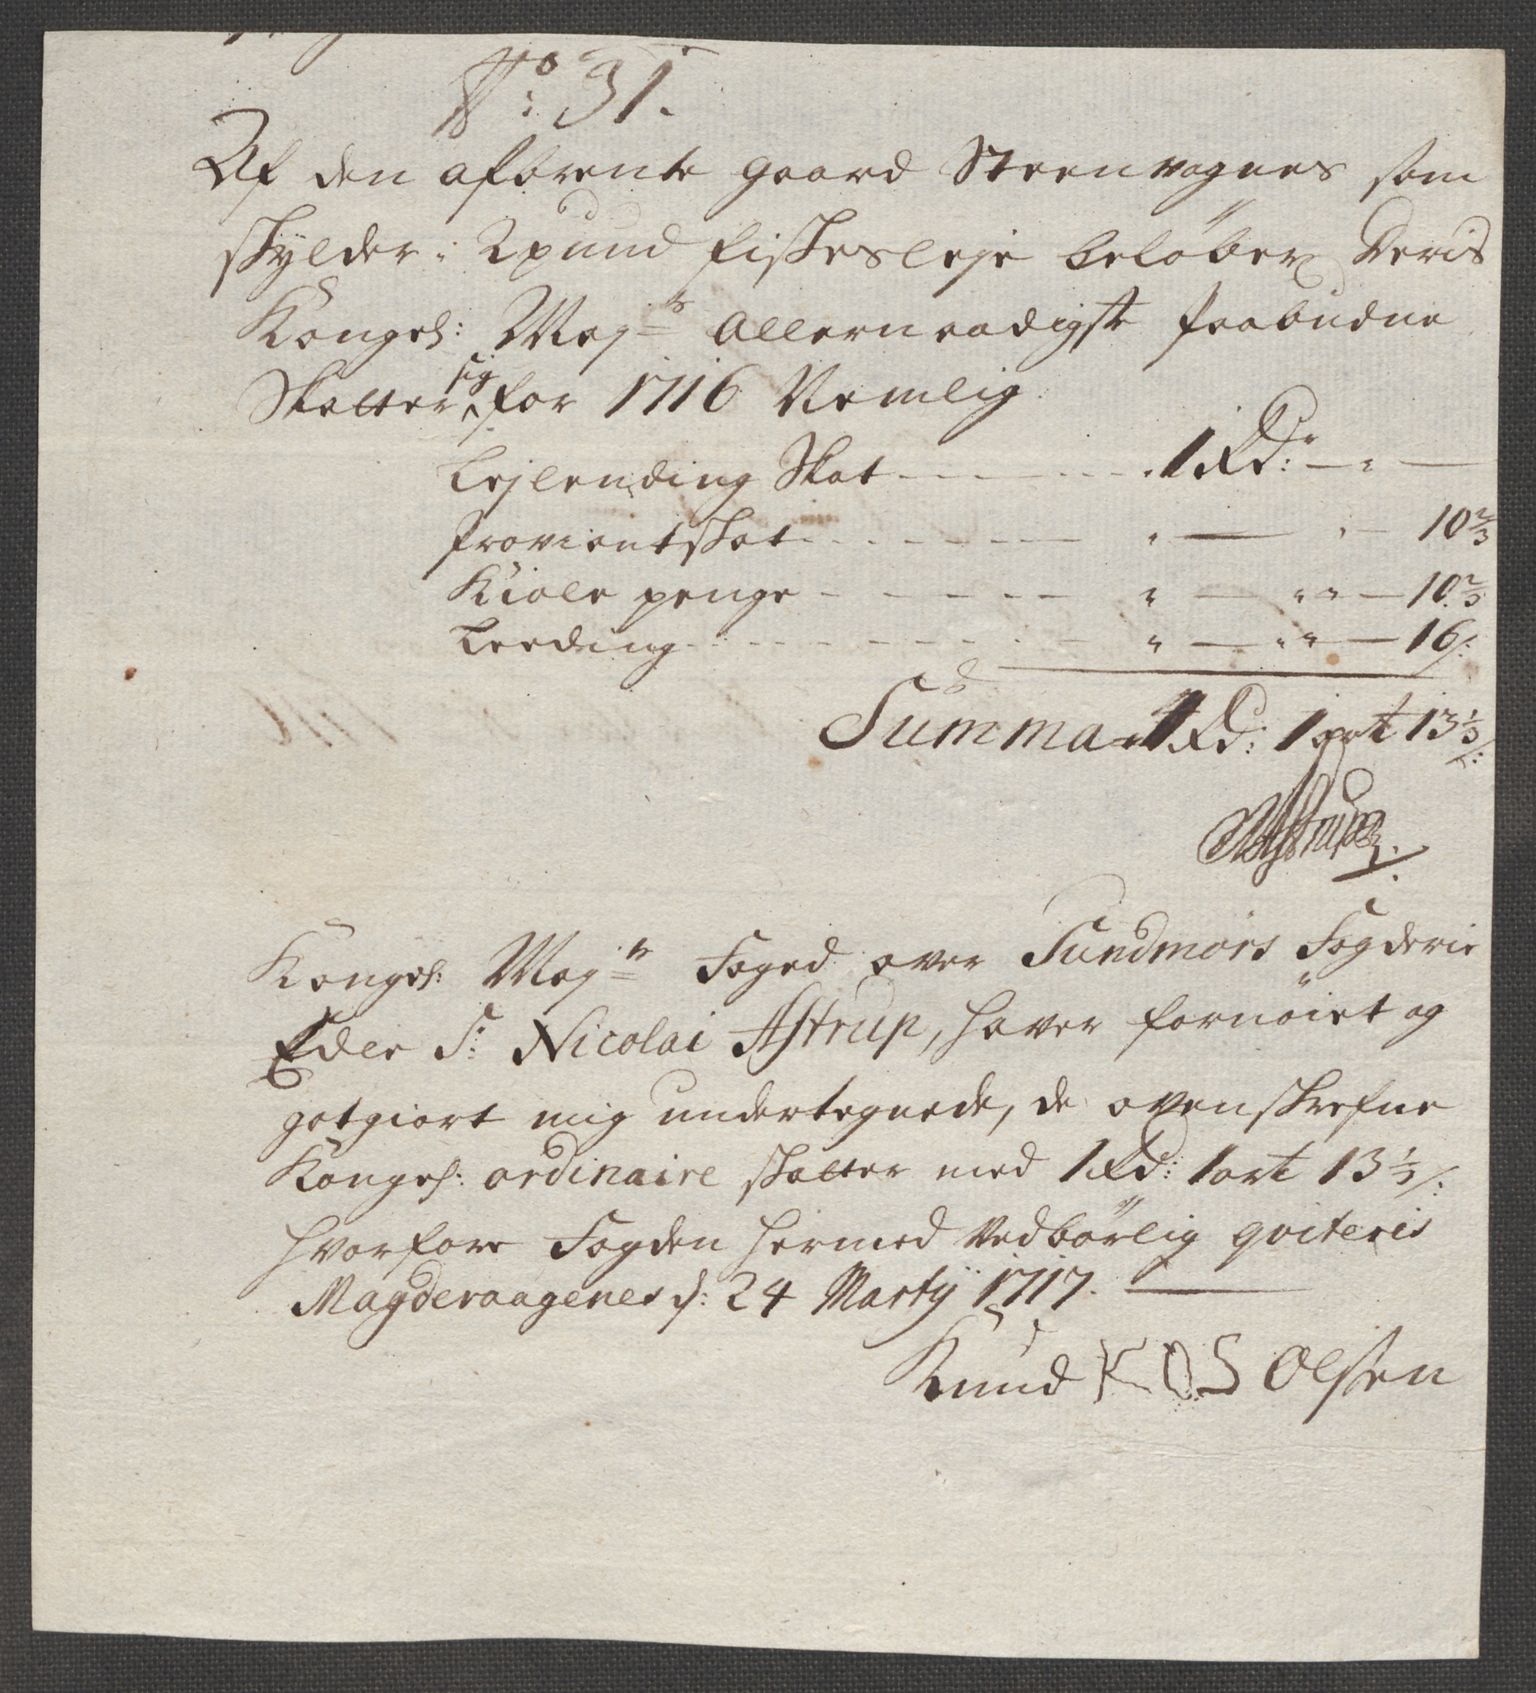 No: 31.
Af den afbrente gaard Steenvognes som
skylder: 2 pund fiskesleje beløber Deris
Kongel: Majts Allernaadigste paabudne
Skatter sig for 1716 Nemlig
Lejlending Skat — 1 Rdr: — " —
Proviantskat — " — " — 10 2/3
Kiole penge — " — " " — 10 2/3
Leeding — " — " " — 16 s:
Summa 1 Rd: 1 ort 13 1/3 s:
NAstrup
Kongel: Majts Foged over Sundmørs Fogderie
Edle Sr: Nicolai Astrup, haver fornøiet og
gotgiort mig undertegnede, de ovenskrefne
Kongel: ordinaire skatter med 1 Rd: 1 ort 13 1/3 s:
hvorfore Fogden hermed Vedbørlig qviteris
Magderaagenes d: 24 Martij 1717.
Knud KOS Olsen